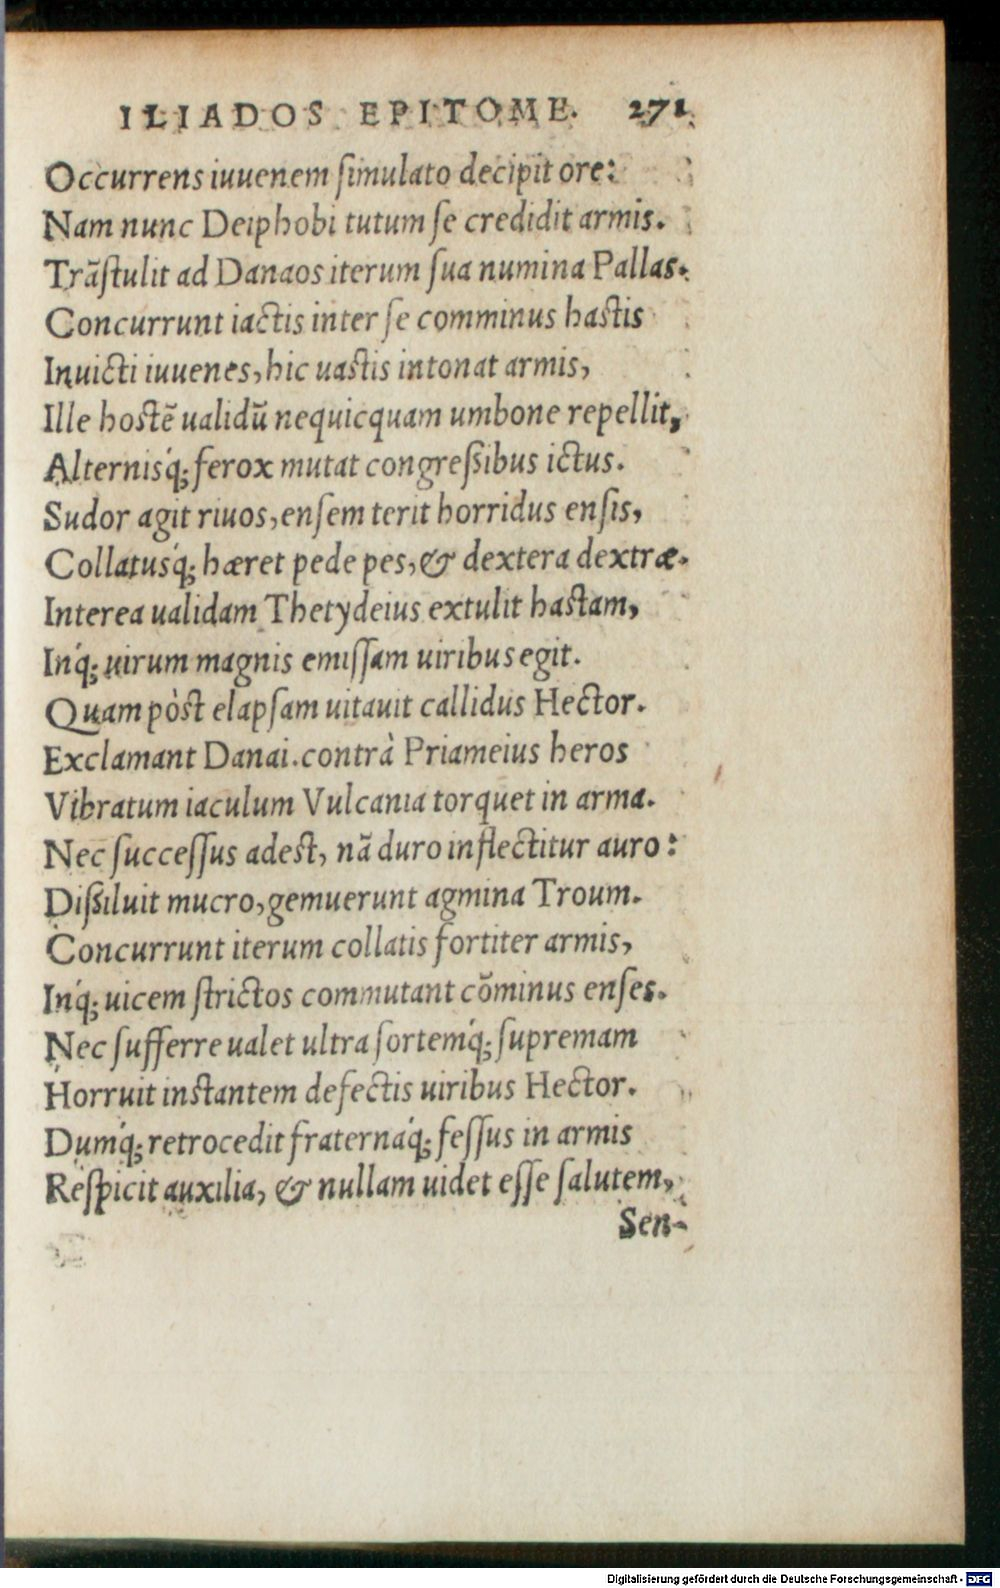 ILIADOS EPITOME. 271
Occurrens iuuenem ſimulato decipit ore:
Nam nunc Deiphobi tutum ſe credidit armis.
Trãſtulit ad Danaos iterum ſua numina Pallas.
Concurrunt iactis inter ſe comminus haſtis
Inuicti iuuenes, hic uaſtis intonat armis,
Ille hoſtẽ ualidũ nequicquam umbone repellit,
Alternisq́; ferox mutat congreßibus ictus.
Sudor agit riuos, enſem terit horridus enſis,
Collatusq́; hæret pede pes, & dextera dextræ.
Interea ualidam Thetydeius extulit haſtam,
Inq́; uirum magnis emiſſam uiribus egit.
Quam pòſt elapſam uitauit callidus Hector.
Exclamant Danai. contrà Priameius heros
Vibratum iaculum Vulcania torquet in arma.
Nec ſucceſſus adeſt, nã duro inflectitur auro:
Dißiluit mucro, gemuerunt agmina Troum.
Concurrunt iterum collatis fortiter armis,
Inq́; uicem ſtrictos commutant cõminus enſes.
Nec ſufferre ualet ultra ſortemq́; ſupremam
Horruit inſtantem defectis uiribus Hector.
Dumq́; retrocedit fraternaq́; feſſus in armis
Reſpicit auxilia, & nullam uidet eſſe ſalutem,
Sen-
Digitalisierung gefördert durch die Deutsche Forschungsgemeinschaft - DFG